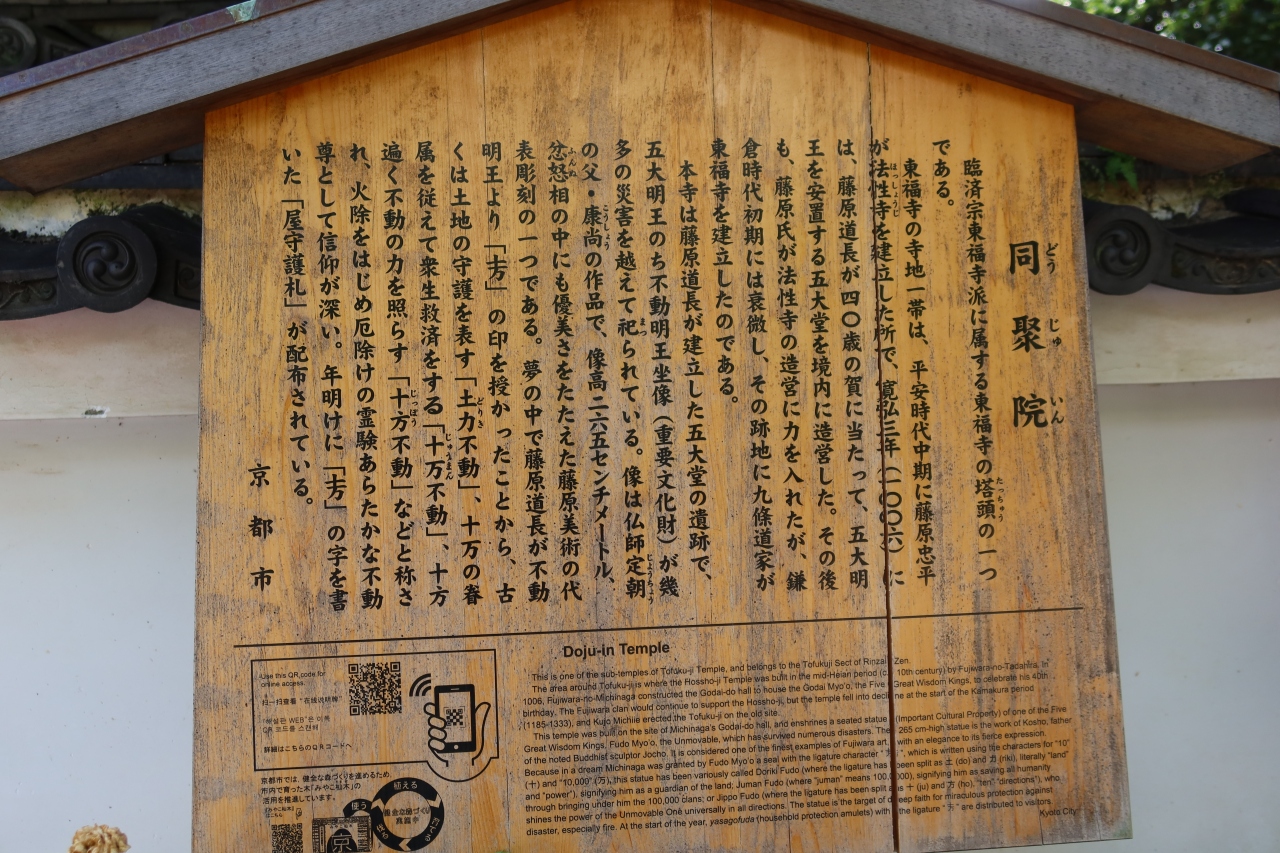 同聚院
どうじゅいん
臨済宗東福寺派に属する東福寺の塔頭の一つ
たっちゅう
である。
東福寺の寺地一帯は、平安時代中期に藤原忠平
が法性寺を建立した所で、寛弘三年（一〇〇六）に
ほっしょうじ
は、藤原道長が四〇歳の賀に当たって、五大明
王を安置する五大堂を境内に造営した。その後
も、藤原氏が法性寺の造営に力を入れたが、鎌
倉時代初期には衰微し、その跡地に九條道家が
東福寺を建立したのである。
本寺は藤原道長が建立した五大堂の遺跡で、
五大明王のうち不動明王坐像（重要文化財）が幾
多の災害を越えて祀られている。像は仏師定朝
まつ
じょうちょう
の父・康尚の作品で、像高二六五センチメートル、
こうしょう
忿怒相の中にも優美さをたたえた藤原美術の代
ふんぬ
表彫刻の一つである。夢の中で藤原道長が不動
明王より「」の印を授かったことから、古
くは土地の守護を表す「土力不動」、十万の眷
どりき
属を従えて衆生救済をする「十万不動」、十方
じゅうまん
遍く不動の力を照らす「十方不動」などと称さ
じっぽう
れ、火除をはじめ厄除けの霊験あらたかな不動
尊として信仰が深い。年明けに「」の字を書
いた「屋守護札」が配布されている。
京都市
Doju-in Temple
This is one of the sub-temples of Tofuku-ji Temple, and belongs to the Tofukuji Sect of Rinzai Zen.
The area around Tofuku-ji is where the Hossho-ji Temple was built in the mid-Heian period (c. 10th century) by Fujiwara-no-Tadahira. In
1006, Fujiwara-no-Michinaga constructed the Godai-do hall to house the Godai Myo'o, the Five Great Wisdom Kings, to celebrate his 40th
birthday. The Fujiwara clan would continue to support the Hossho-ji, but the temple fell into decline at the start of the Kamakura period
(1185-1333), and Kujo Michiie erected the Tofuku-ji on the old site.
This temple was built on the site of Michinaga's Godai-do hall, and enshrines a seated statue (Important Cultural Property) of one of the Five
Great Wisdom Kings, Fudo Myo'o, the Unmovable, which has survived numerous disasters. The 265 cm-high statue is the work of Kosho, father
of the noted Buddhist sculptor Jocho. It is considered one of the finest examples of Fujiwara art, with an elegance to its fierce expression.
Because in a dream Michinaga was granted by Fudo Myo'o a seal with the ligature character " ", which is written using the characters for "10"
(十) and "10,000" (万), this statue has been variously called Doriki Fudo (where the ligature has been split as 土 (do) and 力 (riki), literally "land"
and "power"), signifying him as a guardian of the land; Juman Fudo (where "juman" means 100,000), signifying him as saving all humanity
through bringing under him the 100,000 clans; or Jippo Fudo (where the ligature has been split as 十 (ju) and 方 (ho), "ten" "directions"), who
shines the power of the Unmovable One universally in all directions. The statue is the target of deep faith for miraculous protection against
disaster, especially fire. At the start of the year, yasagofuda (household protection amulets) with the ligature " " are distributed to visitors.
Kyoto City
Use this QR code for
online access.
扫一扫查看"在线说明牌"
"해설판 WEB"은 이쪽
QR 코드를 스캔하
詳細はこちらのQRコードへ
京都市では、健全な森づくりを進めるため、
市内で育った木「みやこ杣木」の
活用を推進しています。
植える
使う